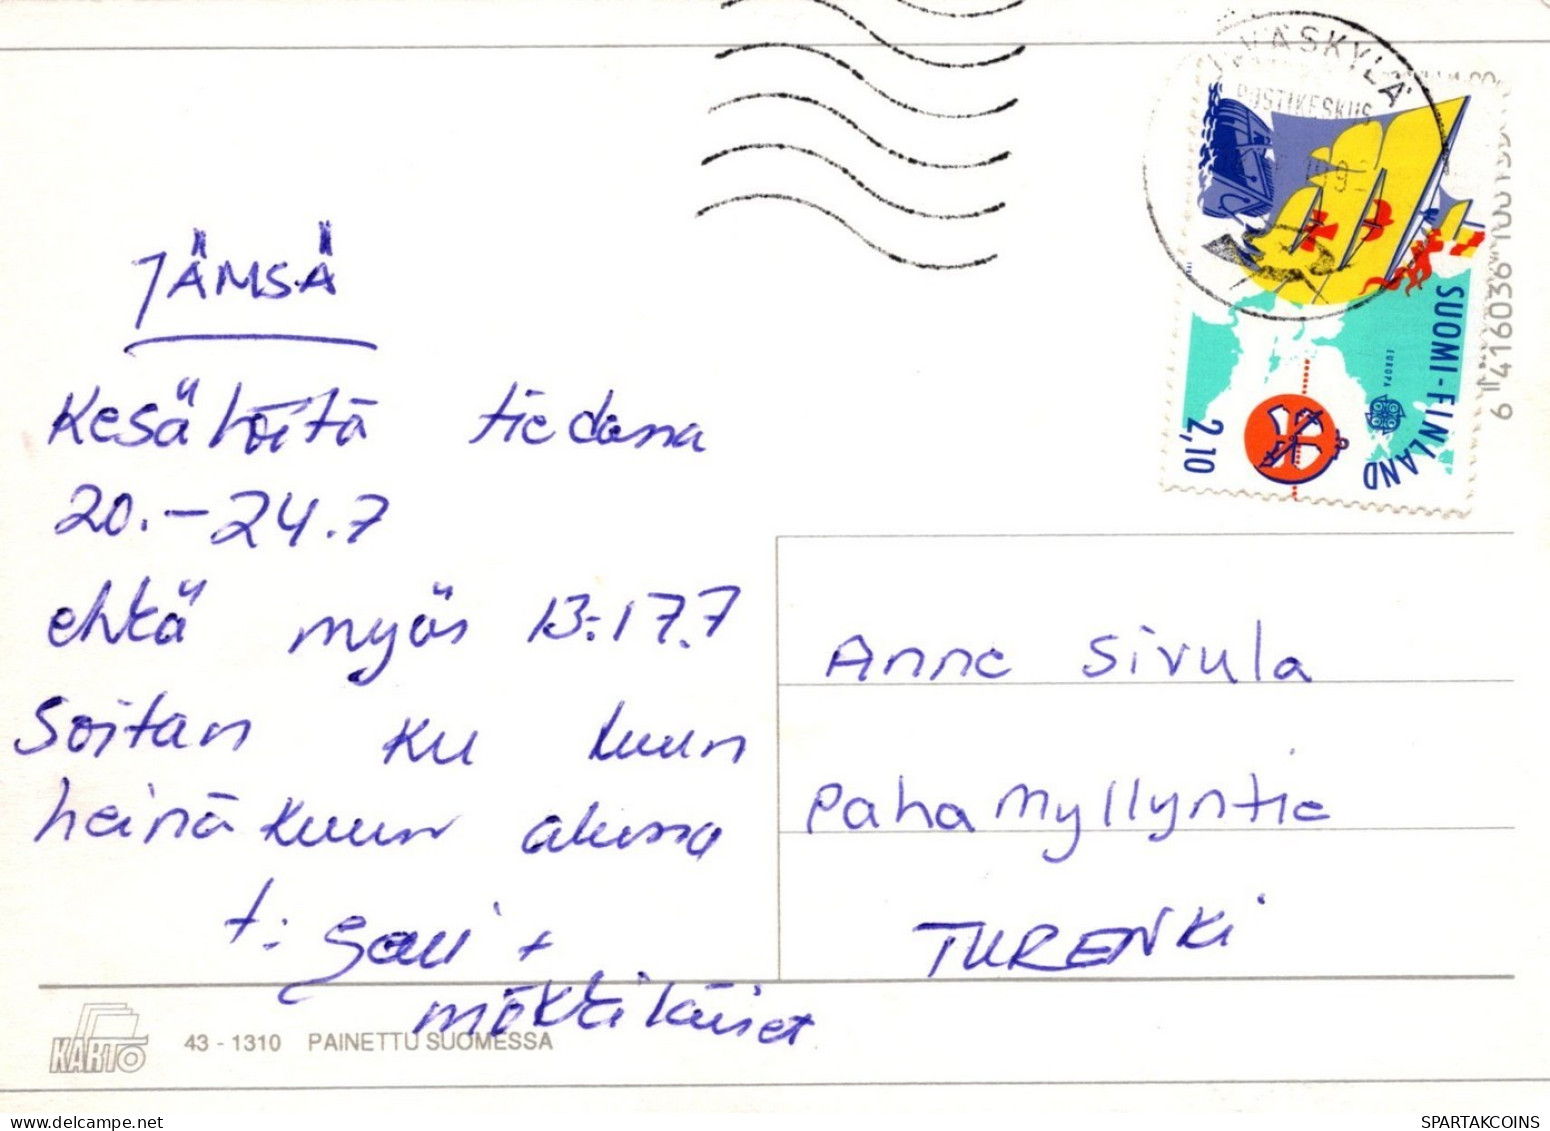 JYVÄSKYLÄ
POSTIKESKUS
SUOMI-FINLAND
EUROPA
2,10
6 416036 100
JÄMSÄ
Kesätöitä tiedossa
20.-24.7
ehkä myös 13.-17.7
Soitan ku kuun
heinäkuun alussa
t: Sari +
mökkiläiset
Anne Sivula
Pahamyllyntie
TURENKI
KARTO
43 - 1310 PAINETTU SUOMESSA
SPARTAKCOINS.COM